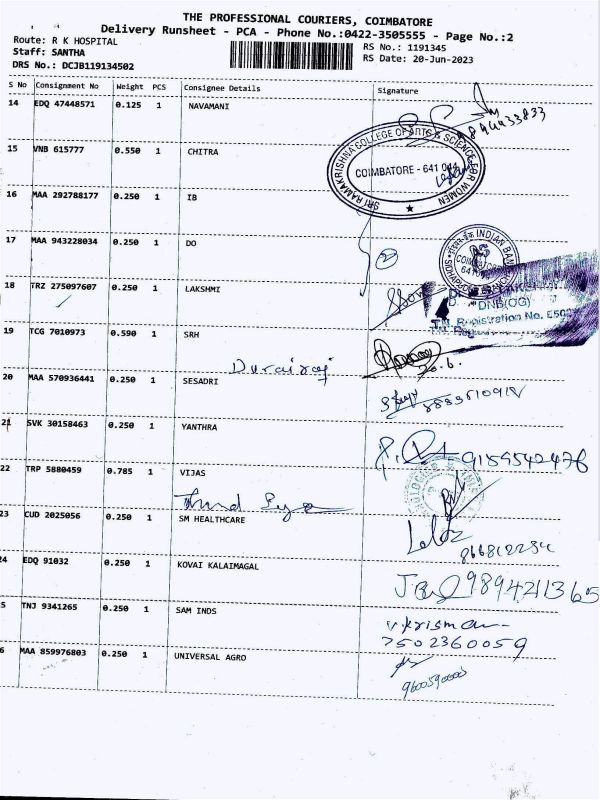 THE PROFESSIONAL COURIERS, COIMBATORE
Delivery Runsheet - PCA - Phone No.:0422-3505555 - Page No.:2
Route: R K HOSPITAL
RS No.: 1191345
Staff: SANTHA
RS Date: 20-Jun-2023
DRS No.: DCJB119134502
S No Consignment No Weight PCS Consignee Details Signature
14 EDQ 47448571 0.125 1 NAVAMANI
15 VNB 615777 0.550 1 CHITRA
SRI RAMAKRISHNA COLLEGE OF ARTS & SCIENCE FOR WOMEN
COIMBATORE - 641 044
16 MAA 292788177 0.250 1 IB
17 MAA 943228034 0.250 1 DO
INDIAN BANK
COIMBATORE
18 TRZ 275097607 0.250 1 LAKSHMI
DNB(OG)
Registration No.
19 TCG 7010973 0.590 1 SRH
Durairaj
20.6.
20 MAA 570936441 0.250 1 SESADRI
21 SVK 30158463 0.250 1 YANTHRA
9159542476
22 TRP 5880459 0.785 1 VIJAS
23 CUD 2025056 0.250 1 SM HEALTHCARE
24 EDQ 91032 0.250 1 KOVAI KALAIMAGAL
9894211365
5 TNJ 9341265 0.250 1 SAM INDS
7502360059
6 MAA 859976803 0.250 1 UNIVERSAL AGRO